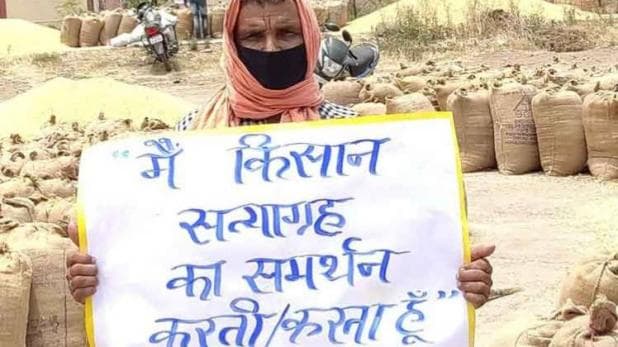 "मै किसान
सत्याग्रह
का समर्थन
करती/करता हूँ"